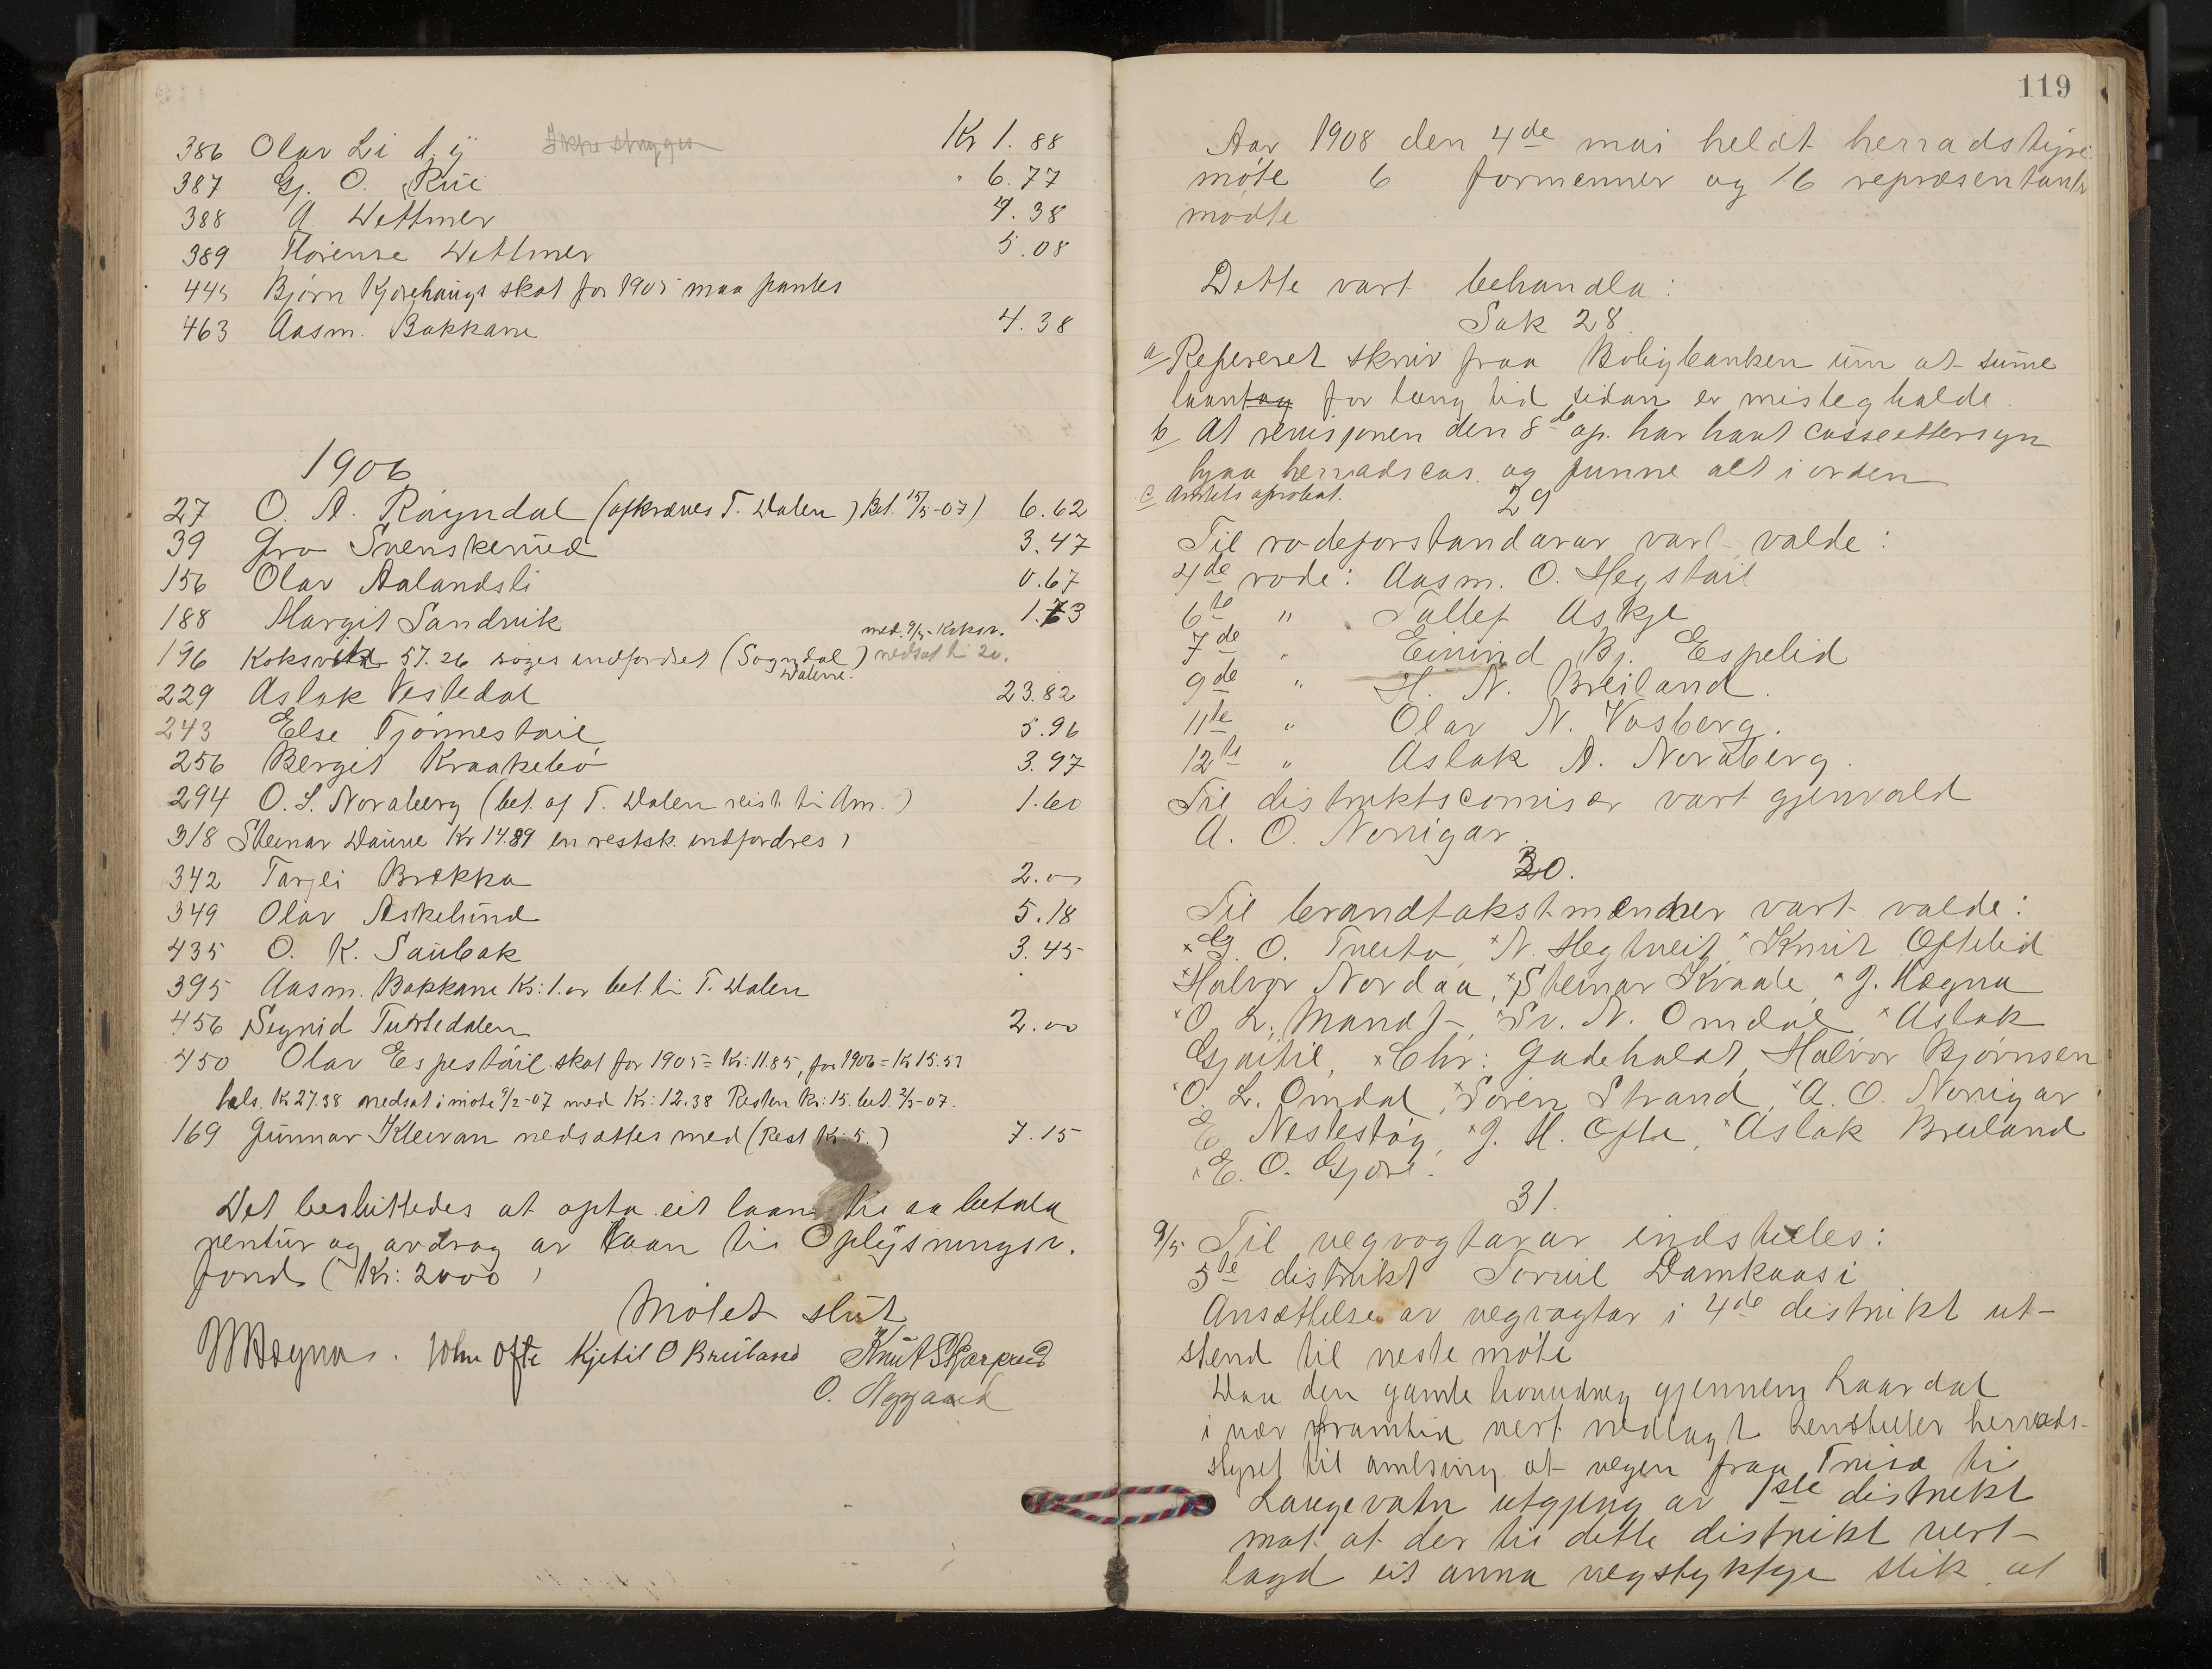 386 Olav Li d. y. Ikke stryges Kr 1.88
387 Gj. O. Rue " 6.77
388 A. Wettmer 4.38
389 Torense Wettmer 5.08
445 Bjørn Kjosehaugs skat for 1905 maa pantes
463 Aasm. Bakkane 4.38
1906
27 O. A. Røyndal (afkræves T. Dalen) Bet. 15/5-07) 6.62
39 Gro Svenskerud 3.47
156 Olav Aalandsli 0.67
188 Margit Sandvik 1.73
med. 9/5- Koksv.
196 Koksv 57.26 søges indfordret (Sogndal) nedsat til 20.
Dalene.
229 Aslak Vestedal 23.82
243 Else Tjønnestaul 5.96
256 Bergit Kraakebø 3.97
294 O. S. Noraberg (bet. af T. Dalen reist til Am.) 1.60
318 Steinar Daune Kr 14.89 en restsk. indfordres)
342 Tarjei Brekka 2.00
349 Olav Askelund 5.18
435 O. K. Saubak 3.45
395 Aasm. Bakkane Kr: 1.00 bet. til T. Dalen
456 Signid Turtedalen 2.00
450 Olav Espestaul skat for 1905 = Kr: 11.85, for 1906 = Kr 15.53
tils. Kr 27.38 nedsat i møte 9/2-07 med Kr: 12.38 Resten Kr: 15. bet. 2/5-07.
169 Gunnar Kleivan nedsattes med (Rest Kr: 5.) 7.15
Det besluttedes at opta eit laan til aa betala
rentur og avdrag av laan til Oplysningsv.
fond (Kr: 2000)
Møtet slut
John Ofte Kjetil O Breiland Knut Skarprud
O. Nygaard
119
Aar 1908 den 4de mai heldt herradstyre
møte 6 formenner og 16 repræsentantr
mødte
Dette vart behandla:
Sak 28.
a Refereret skriv fraa Boligbanken um at sume
laantag for lang tid sidan er misleghalde.
b At revisjonen den 8de ap. har havt casseettersyn
hjaa herradscas. og funne alt i orden
c Amtets aprobat.
29
Til rodeforstandarar vart valde:
4de rode: Aasm. O. Hegstaul
6te " Tallef Askje
7de " Eivind Bj. Espelid
9de " H. N. Breiland.
11te " Olav N. Vasberg.
12te " Aslak A. Noraberg.
Til distriktscomisær vart gjenvald
A. O. Norrigar.
30.
Til brandtakstmænner vart valde:
G. O. Tveito, N. Hegtveit, Knut Oftelid
Halvor Nordaa, Steinar Kraale, J. Høgna
O. L. Mandt, Sv. N. Omdal, Aslak
Gjuitil, Chr: Gadeholdt, Halvor Bjørnsen
O. L. Omdal, Søren Strand, A. O. Norrigar
E. Nestestøg, J. H. Ofte, Aslak Breiland
E. O. Gjøre.
31.
9/5 Til vegvogtarar indstilles:
5te distrikt Toreiel Damkaasi
Ansættelse av vegvogtar i 4de distrikt ut-
stend til neste møte
Daa den gamle hovudveg gjennem Laardal
i nær framtid vert nedlagt henstiller herreds-
styret til amtsing. at vegen fraa Trisæ til
Langevatn utgjeng av 1ste distrikt
mot at der til dette distrikt vert
lagd eit anna vegstykkje slik at